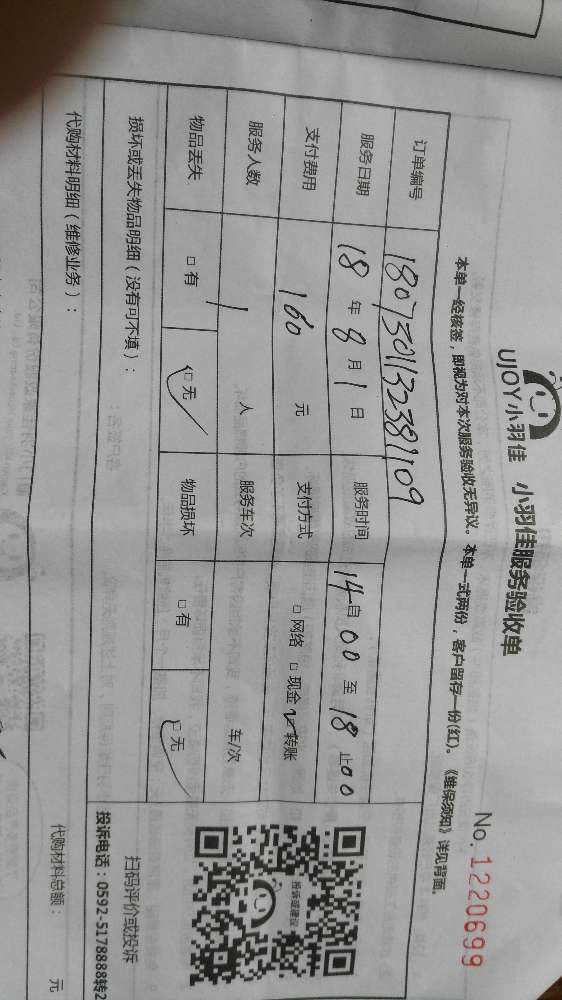 UJOY小羽佳 小羽佳服务验收单
No. 1220699
本单一经核签，即视为对本次服务验收无异议。本单一式两份，客户留存一份(红)。《维保须知》详见背面。
订单编号 1807301132381109
服务日期 18 年 8 月 1 日 服务时间 14 自 00 至 18 止 00
支付费用 160 元 支付方式 □ 网络 □ 现金 ✓ 转账
服务人数 1 人 服务车次 车/次
物品丢失 □ 有 □ 无 ✓ 物品损坏 □ 有 □ 无 ✓
损坏或丢失物品明细（没有可不填）：
投诉或建议
扫码评价或投诉
投诉电话：0592-5178888转2
代购材料明细（维修业务）：
代购材料总额： 元